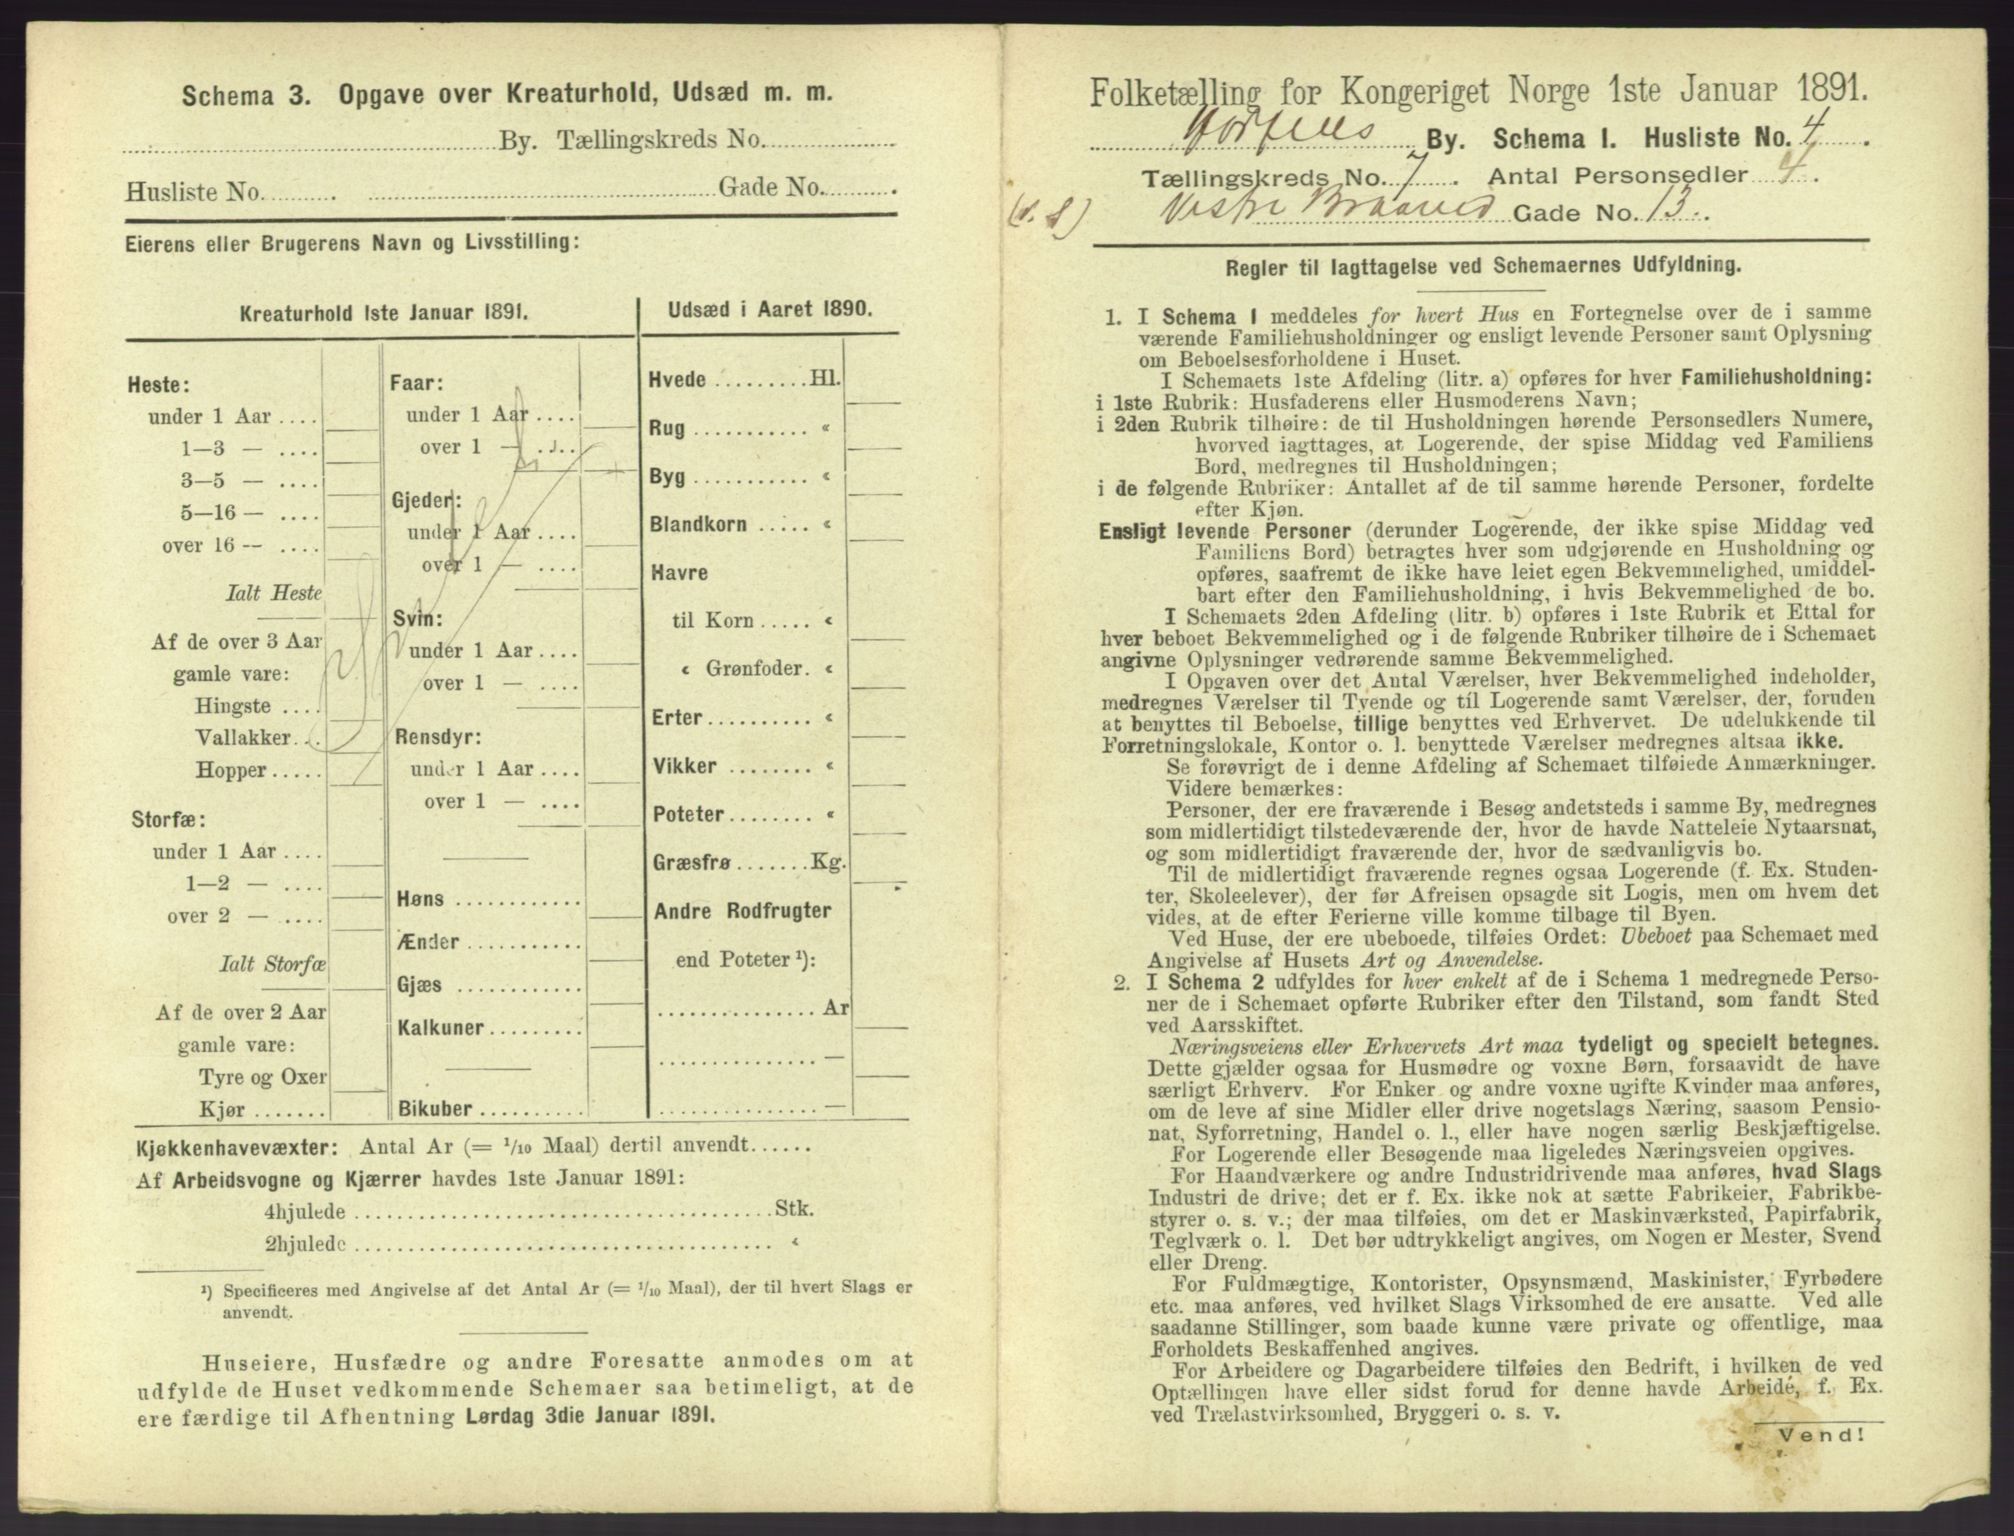 Schema 3. Opgave over Kreaturhold, Udsæd m. m.
By. Tællingskreds No.
Husliste No. Gade No.
Eierens eller Brugerens Navn og Livsstilling:
Kreaturhold 1ste Januar 1891.
Heste:
under 1 Aar ....
1—3 — ....
3—5 — ....
5—16 — ....
over 16 -- ....
Ialt Heste
Af de over 3 Aar
gamle vare:
Hingste ....
Vallakker...
Hopper.....
Storfæ:
under 1 Aar ....
1—2 — ....
over 2 — ....
Ialt Storfæ
Af de over 2 Aar
gamle vare:
Tyre og Oxer
Kjør .......
Faar:
under 1 Aar ....
over 1 — ....
Gjeder:
under 1 Aar ....
over 1 — ....
Svin:
under 1 Aar ....
over 1 — ....
Rensdyr:
under 1 Aar ....
over 1 — ....
Høns ............
Ænder ...........
Gjæs ............
Kalkuner.........
Bikuber ..........
Udsæd i Aaret 1890.
Hvede .........Hl.
Rug ........... «
Byg ........... «
Blandkorn ..... «
Havre
til Korn ..... «
« Grønfoder. «
Erter.......... «
Vikker ........ «
Poteter........ «
Græsfrø .......Kg.
Andre Rodfrugter
end Poteter ¹):
............... Ar
............... —
............... —
Kjøkkenhavevæxter: Antal Ar (= 1/10 Maal) dertil anvendt......
Af Arbeidsvogne og Kjærrer havdes 1ste Januar 1891:
4hjulede ........................................Stk.
2hjulede ........................................ «
¹) Specificeres med Angivelse af det Antal Ar (= 1/10 Maal), der til hvert Slags er
anvendt.
Huseiere, Husfædre og andre Foresatte anmodes om at
udfylde de Huset vedkommende Schemaer saa betimeligt, at de
ere færdige til Afhentning Lørdag 3die Januar 1891.
Folketælling for Kongeriget Norge 1ste Januar 1891.
Hortens By. Schema 1. Husliste No. 4.
Tællingskreds No. 7. Antal Personsedler 4.
Vestre Braaned Gade No. 13.
Regler til Iagttagelse ved Schemaernes Udfyldning.
1. I Schema 1 meddeles for hvert Hus en Fortegnelse over de i samme
værende Familiehusholdninger og ensligt levende Personer samt Oplysning
om Beboelsesforholdene i Huset.
I Schemaets 1ste Afdeling (litr. a) opføres for hver Familiehusholdning:
i 1ste Rubrik: Husfaderens eller Husmoderens Navn;
i 2den Rubrik tilhøire: de til Husholdningen hørende Personsedlers Numere,
hvorved iagttages, at Logerende, der spise Middag ved Familiens
Bord, medregnes til Husholdningen;
i de følgende Rubriker: Antallet af de til samme hørende Personer, fordelte
efter Kjøn.
Ensligt levende Personer (derunder Logerende, der ikke spise Middag ved
Familiens Bord) betragtes hver som udgjørende en Husholdning og
opføres, saafremt de ikke have leiet egen Bekvemmelighed, umiddel-
bart efter den Familiehusholdning, i hvis Bekvemmelighed de bo.
I Schemaets 2den Afdeling (litr. b) opføres i 1ste Rubrik et Ettal for
hver beboet Bekvemmelighed og i de følgende Rubriker tilhøire de i Schemaet
angivne Oplysninger vedrørende samme Bekvemmelighed.
I Opgaven over det Antal Værelser, hver Bekvemmelighed indeholder,
medregnes Værelser til Tyende og til Logerende samt Værelser, der, foruden
at benyttes til Beboelse, tillige benyttes ved Erhvervet. De udelukkende til
Forretningslokale, Kontor o. l. benyttede Værelser medregnes altsaa ikke.
Se forøvrigt de i denne Afdeling af Schemaet tilføiede Anmærkninger.
Videre bemærkes:
Personer, der ere fraværende i Besøg andetsteds i samme By, medregnes
som midlertidigt tilstedeværende der, hvor de havde Natteleie Nytaarsnat,
og som midlertidigt fraværende der, hvor de sædvanligvis bo.
Til de midlertidigt fraværende regnes ogsaa Logerende (f. Ex. Studen-
ter, Skoleelever), der før Afreisen opsagde sit Logis, men om hvem det
vides, at de efter Ferierne ville komme tilbage til Byen.
Ved Huse, der ere ubeboede, tilføies Ordet: Ubeboet paa Schemaet med
Angivelse af Husets Art og Anvendelse.
2. I Schema 2 udfyldes for hver enkelt af de i Schema 1 medregnede Perso-
ner de i Schemaet opførte Rubriker efter den Tilstand, som fandt Sted
ved Aarsskiftet.
Næringsveiens eller Erhvervets Art maa tydeligt og specielt betegnes.
Dette gjælder ogsaa for Husmødre og voxne Børn, forsaavidt de have
særligt Erhverv. For Enker og andre voxne ugifte Kvinder maa anføres,
om de leve af sine Midler eller drive nogetslags Næring, saasom Pensio-
nat, Syforretning, Handel o. l., eller have nogen særlig Beskjæftigelse.
For Logerende eller Besøgende maa ligeledes Næringsveien opgives.
For Haandværkere og andre Industridrivende maa anføres, hvad Slags
Industri de drive; det er f. Ex. ikke nok at sætte Fabrikeier, Fabrikbe-
styrer o. s. v.; der maa tilføies, om det er Maskinværksted, Papirfabrik,
Teglværk o. l. Det bør udtrykkeligt angives, om Nogen er Mester, Svend
eller Dreng.
For Fuldmægtige, Kontorister, Opsynsmænd, Maskinister, Fyrbødere
etc. maa anføres, ved hvilket Slags Virksomhed de ere ansatte. Ved alle
saadanne Stillinger, som baade kunne være private og offentlige, maa
Forholdets Beskaffenhed angives.
For Arbeidere og Dagarbeidere tilføies den Bedrift, i hvilken de ved
Optællingen have eller sidst forud for denne havde Arbeide, f. Ex.
ved Trælastvirksomhed, Bryggeri o. s. v.
Vend!